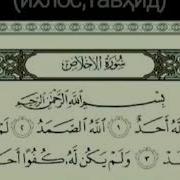 (ихлос,тавҳид)
سُورَةُ الإِخْلَاصِ
بِسْمِ ٱللَّهِ ٱلرَّحْمَٰنِ ٱلرَّحِيمِ
ٱللَّهُ أَحَدٌ ١ ٱللَّهُ ٱلصَّمَدُ ٢
٣ وَلَمْ يَكُن لَّهُۥ كُفُوًا